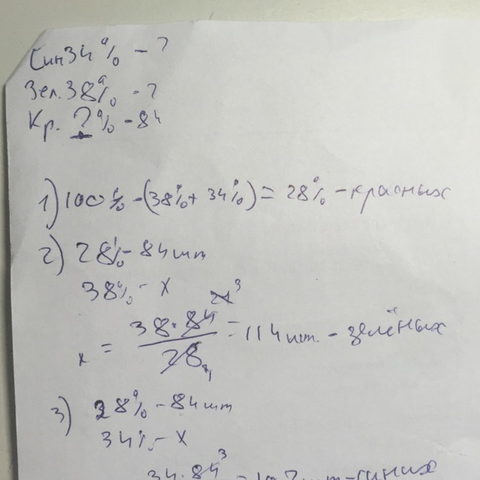 Син 34% - ?
Зел. 38% - ?
Кр. ?% - 84
1) 100% - (38% + 34%) = 28% - красных
2) 28% - 84 шт
38% - x
x = 38 · 84 3 / 28 1 = 114 шт. - зелёных
3) 28% - 84 шт
34% - x
34 · 84 3 = 102 шт - синих